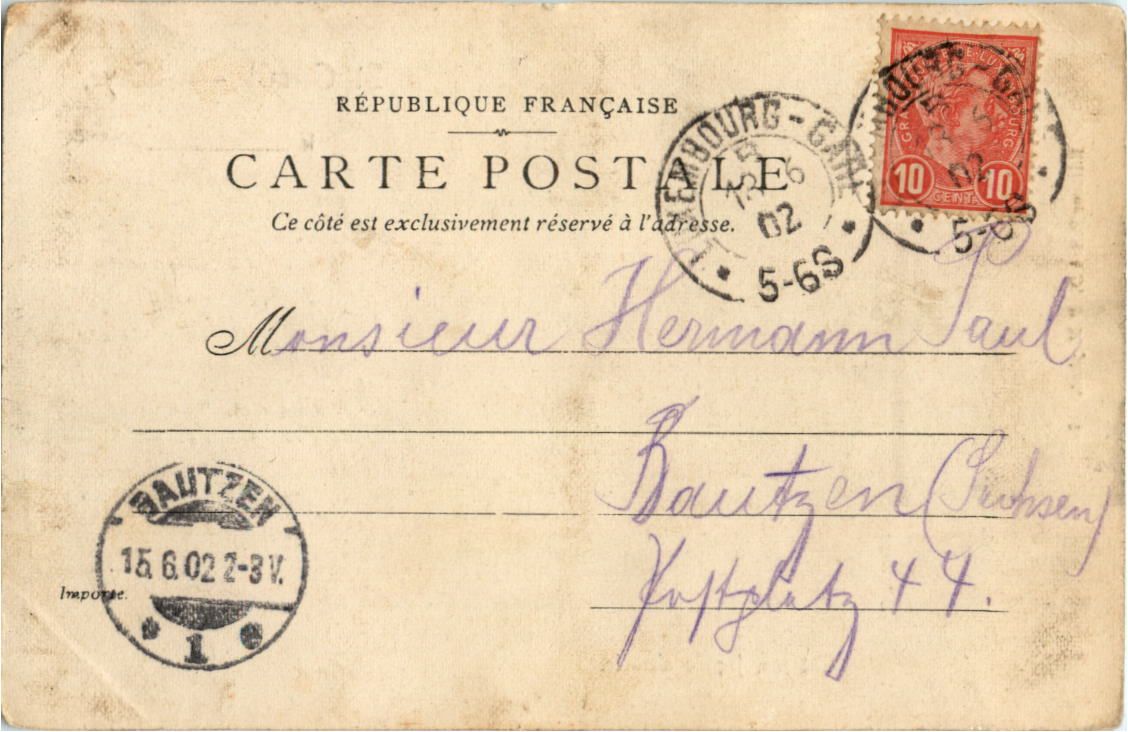 RÉPUBLIQUE FRANÇAISE
CARTE POSTALE
Ce côté est exclusivement réservé à l'adresse.
LUXEMBOURG-GARE
6
02
5-6S
GRAND
LUXEMBOURG
10 CENT. 10
02
5-6S
Monsieur Hermann Paul
Bautzen (Sachsen)
Postplatz 44.
BAUTZEN
15.6.02 2-3V.
1
Importé.